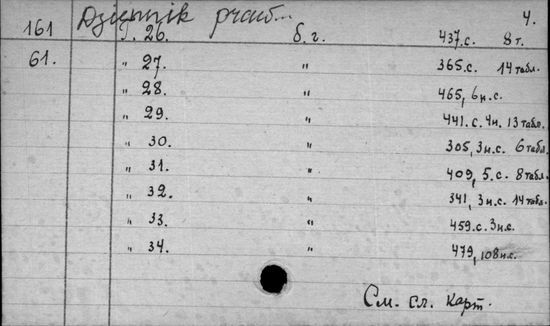 4.
Dziennik praw...
161 T. 26. б. г. 437.с. 8 т.
61. " 27. " 365.с. 14 табл.
" 28. " 465, 6 н.с.
" 29. " 441. с. 4н. 13 табл.
" 30. " 305, 3н.с. 6 табл.
" 31. " 409, 5. с. 8 табл.
" 32. " 341, 3 н.с. 14 табл.
" 33. " 459.с. 3н.с.
" 34. " 479, 108 н.с.
См. сл. карт.